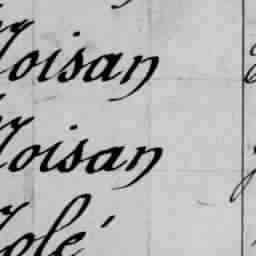 Moisan
Moisan
Molé